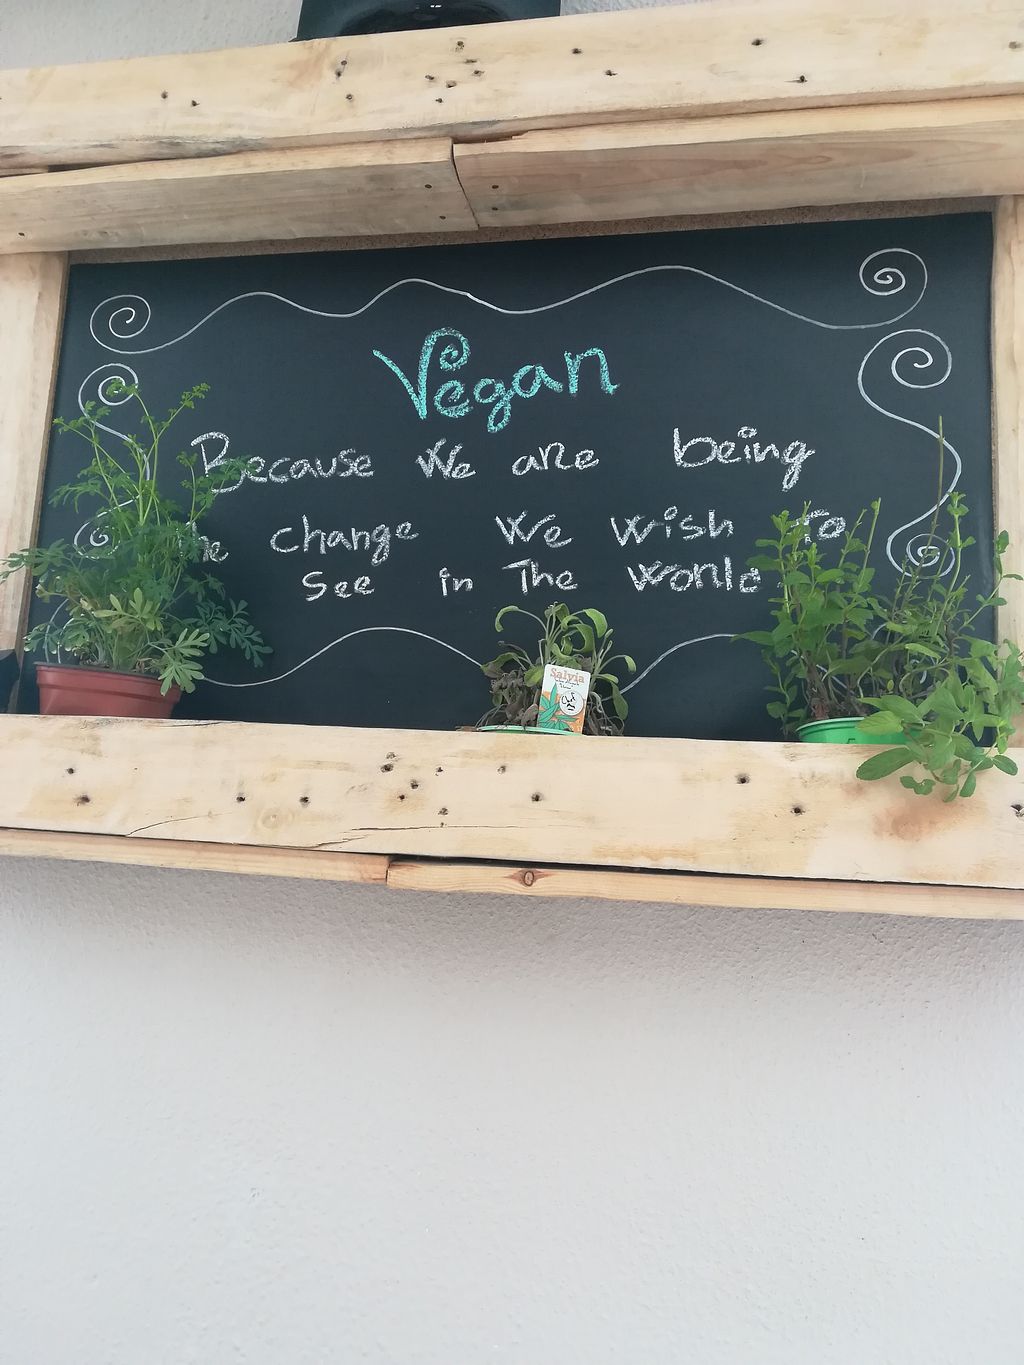 Vegan
Because We are being
he change We wish To
See in The World
Salvia